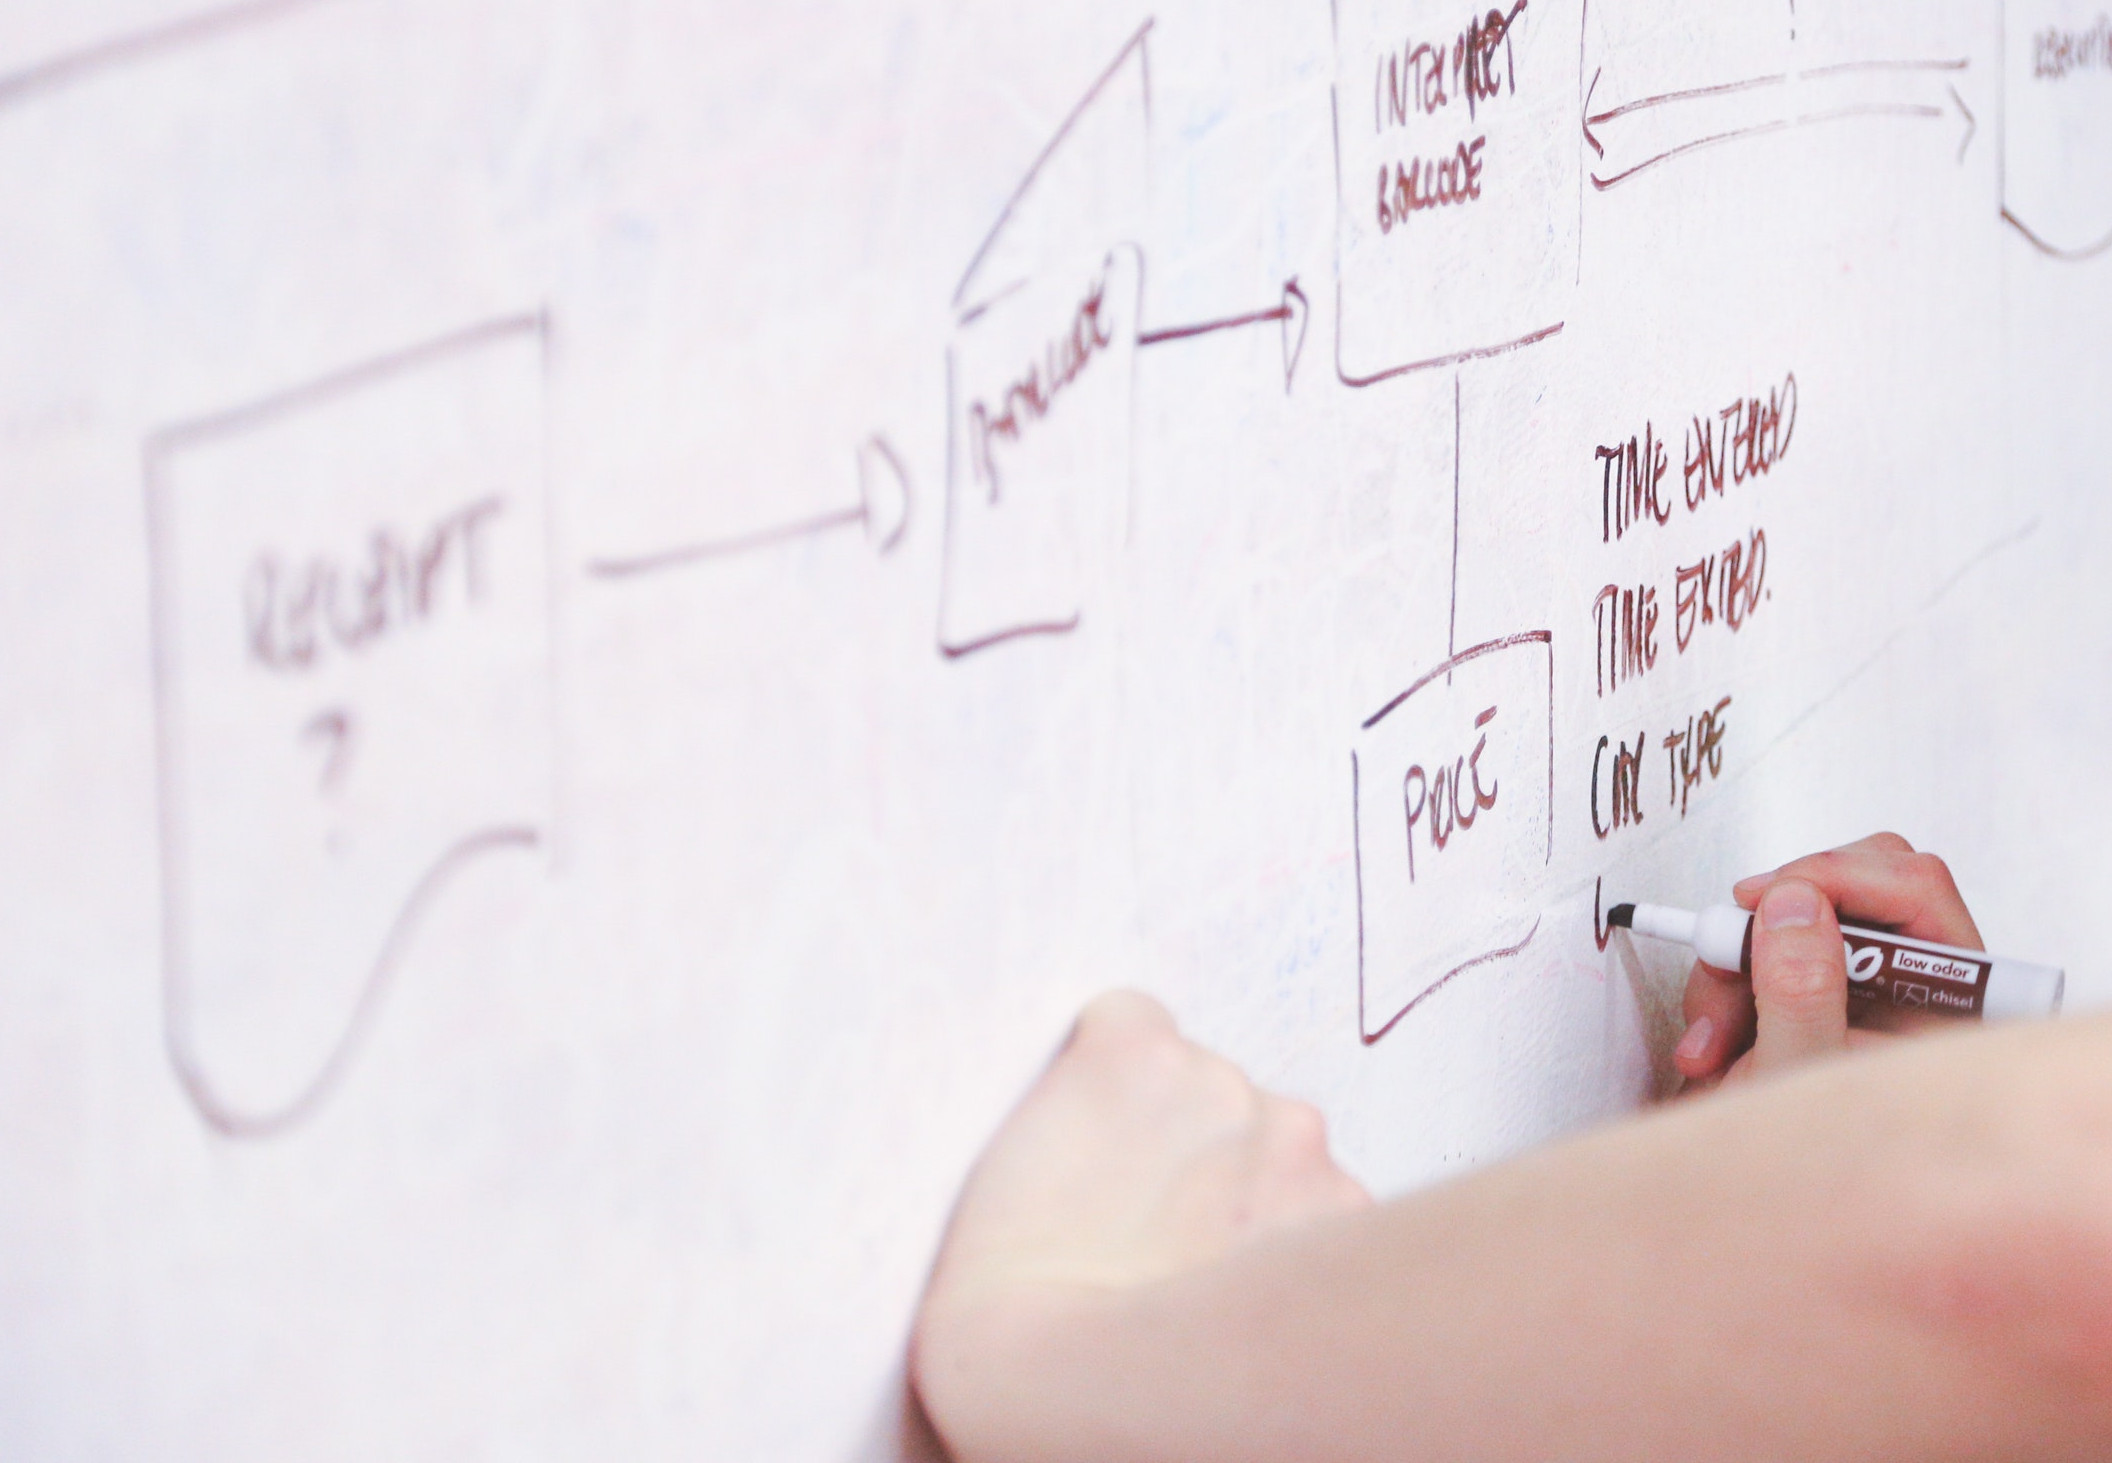 RECEIPT
?
BARCODE
INTERPRET
BARCODE
PRICE
TIME ENTERED
TIME EXITED.
CAR TYPE
low odor
chisel